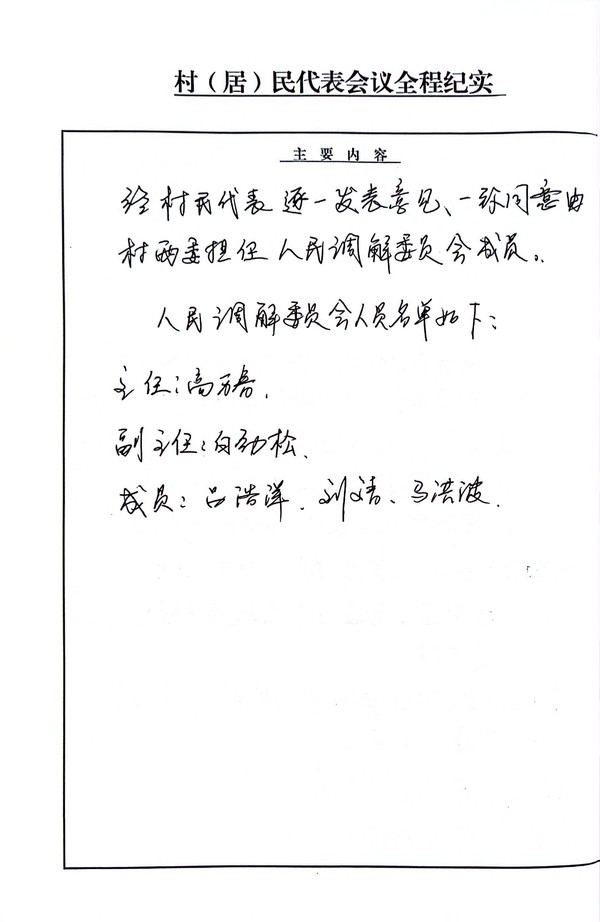 村（居）民代表会议全程纪实
主要内容
经村民代表逐一发表意见、一致同意由
村两委担任人民调解委员会成员。
人民调解委员会人员名单如下：
主任：高
副主任：白劲松.
成员：吕浩洋.刘清、马洪波.